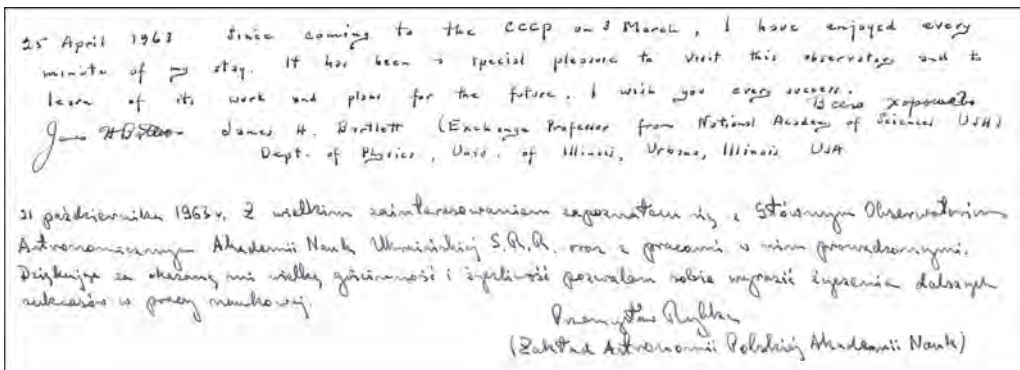 25 April 1963 Since coming to the CCCP on 3 March, I have enjoyed every
minute of my stay. It has been a special pleasure to visit this observatory and to
learn of its work and plans for the future. I wish you every success.
Всего хорошего
James H Bartlett James H. Bartlett (Exchange Professor from National Academy of Sciences USA)
Dept. of Physics, Univ. of Illinois, Urbana, Illinois USA
21 października 1963 r. Z wielkim zainteresowaniem zapoznałem się z Głównym Obserwatorium
Astronomicznym Akademii Nauk Ukraińskiej S.R.R. oraz z pracami w nim prowadzonymi.
Dziękując za okazaną mi wielką gościnność i życzliwość pozwalam sobie wyrazić życzenia dalszych
sukcesów w pracy naukowej.
Przemysław Rybka
(Zakład Astronomii Polskiej Akademii Nauk)